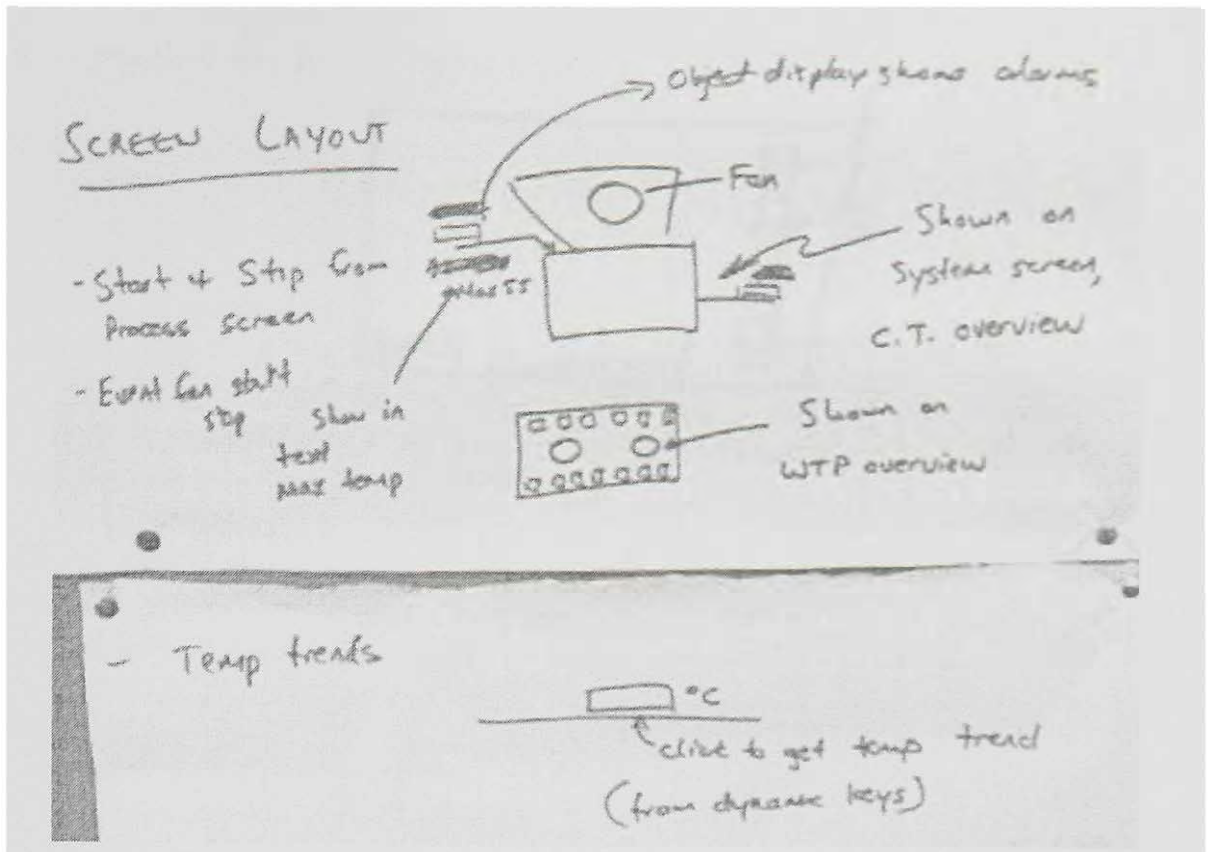 Object display shows alarms
SCREEN LAYOUT
Fan
Shown on
System screen,
C.T. overview
- Start & Stip from
Process screen
55
- Event fan start
stop show in
text
max temp
Shown on
WTP overview
- Temp trends
°C
click to get temp trend
(from dynamic keys)